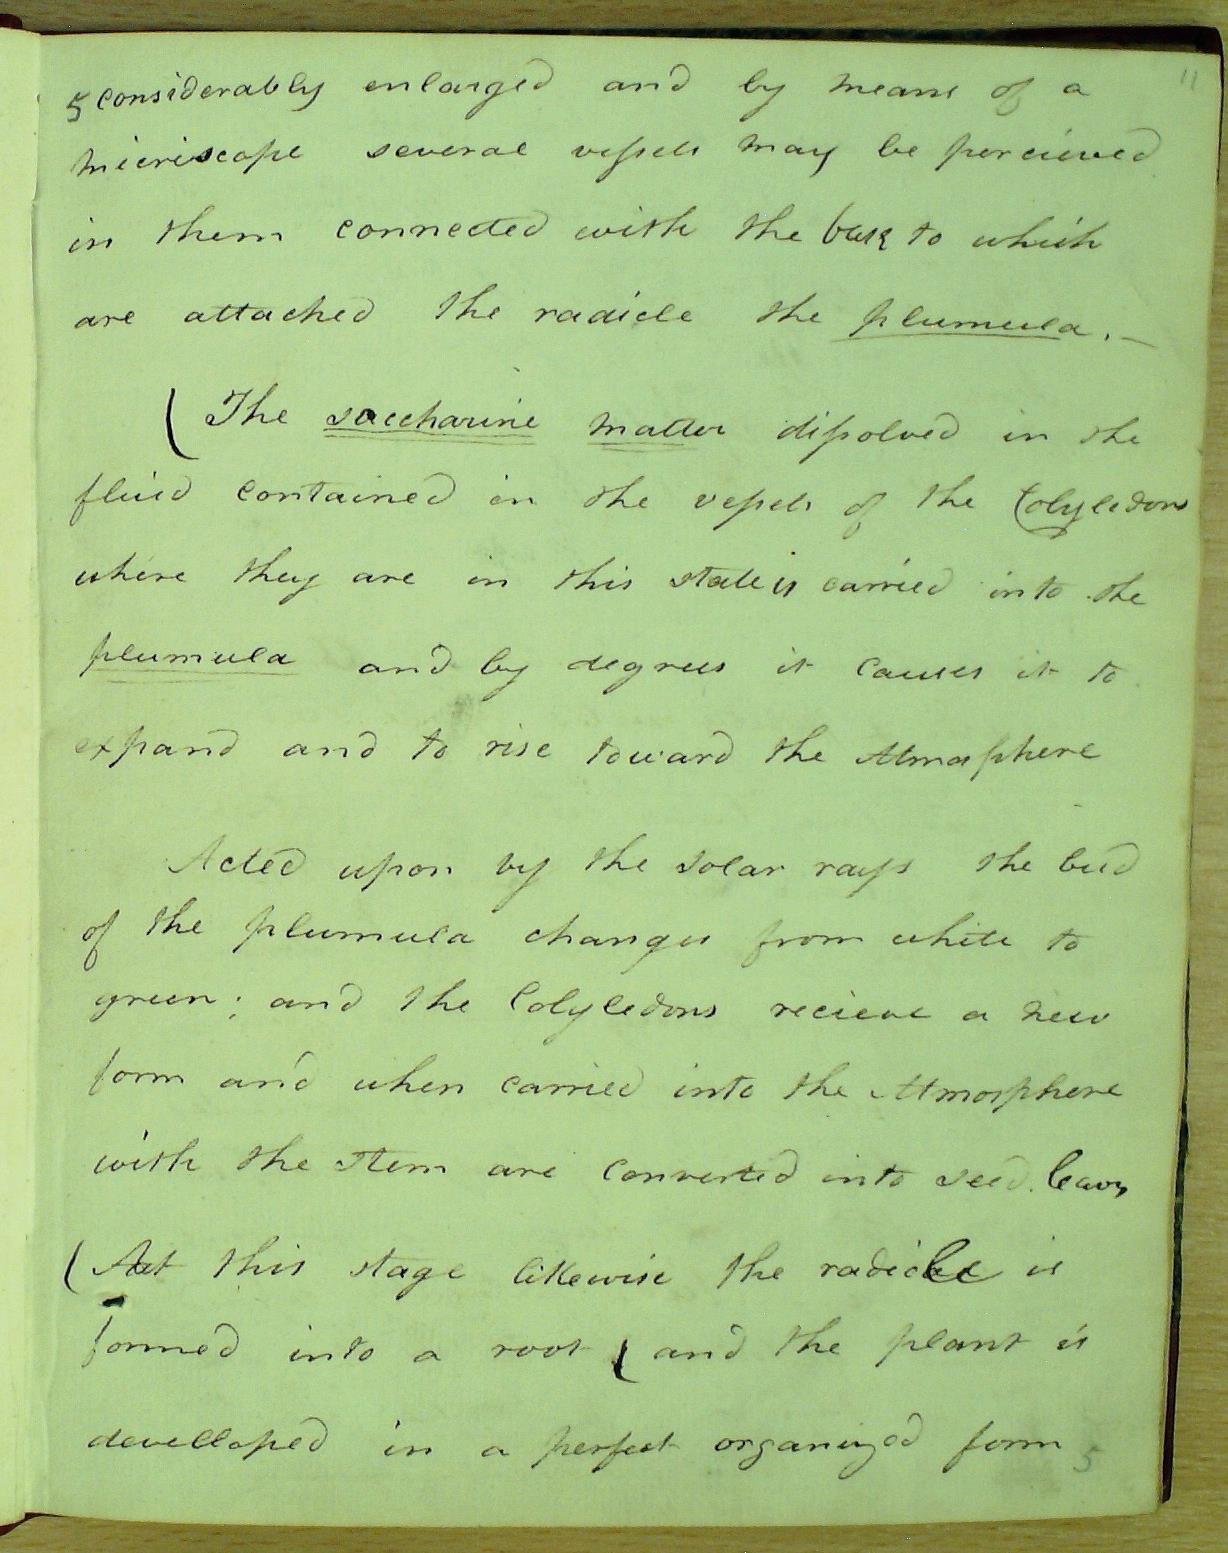 11
5 considerably enlarged and by means of a
micriscope several vessels may be percieved
in them connected with the to which
are attached the radicle the plumula. —
( The saccharine matter dissolved in the
fluid contained in the vessels of the Cotyledons
where they are in this state is carried into the
plumula and by degrees it causes it to
expand and to rise toward the Atmosphere
Acted upon by the solar rays the bud
of the plumula changes from white to
green; and the Cotyledons recieve a new
form and when carried into the Atmosphere
with the stem are converted into seed leaves
( At this stage likewise the radicle is
formed into a root ( and the plant is
develloped in a perfect organized form 5